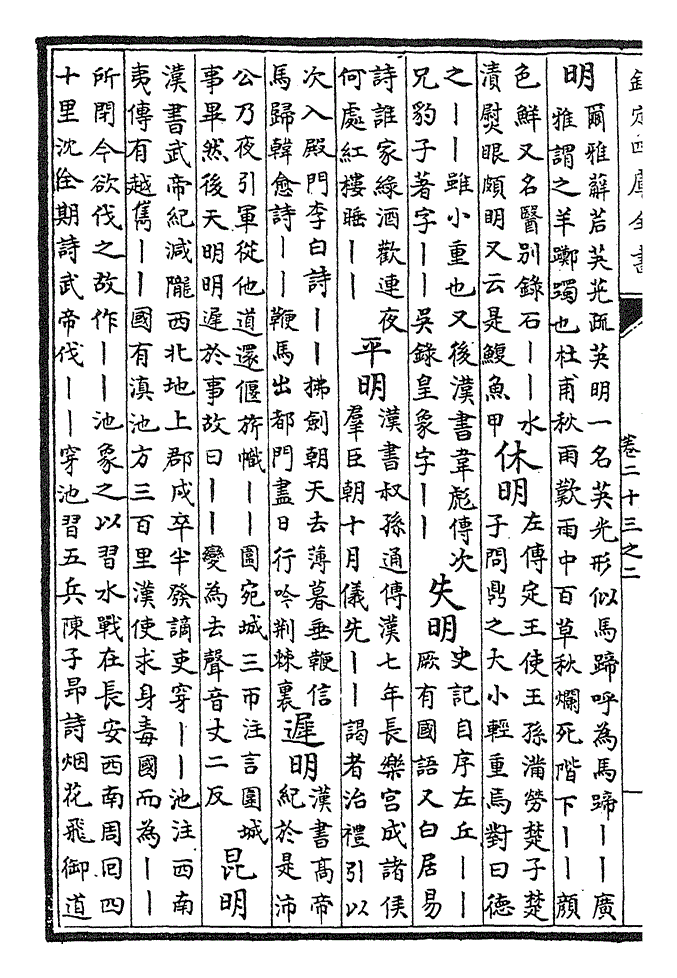 欽定四庫全書
卷二十三之二
明
爾雅薢茩英茪疏英明一名英光形似馬蹄呼為馬蹄――廣
雅謂之羊躑躅也杜甫秋雨歎雨中百草秋爛死階下――顔
色鮮又名醫别錄石――水
漬熨眼頗明又云是鰒魚甲
休明
左傳定王使王孫滿勞楚子楚
子問鼎之大小輕重焉對曰德
之――雖小重也又後漢書韋彪傳次
兄豹子著字――吳錄皇象字――
失明
史記自序左丘――
厥有國語又白居易
詩誰家綠酒歡連夜
何處紅樓睡――
平明
漢書叔孫通傳漢七年長樂宮成諸侯
羣臣朝十月儀先――謁者治禮引以
次入殿門李白詩――拂劍朝天去薄暮垂鞭信
馬歸韓愈詩――鞭馬出都門盡日行吟荆棘裏
遲明
漢書高帝
紀於是沛
公乃夜引軍從他道還偃旂幟――圍宛城三帀注言圍城
事畢然後天明明遲於事故曰――變為去聲音丈二反
昆明
漢書武帝紀減隴西北地上郡戍卒半發謫吏穿――池注西南
夷傳有越嶲――國有滇池方三百里漢使求身毒國而為――
所閉今欲伐之故作――池象之以習水戰在長安西南周回四
十里沈佺期詩武帝伐――穿池習五兵陳子昂詩烟花飛御道